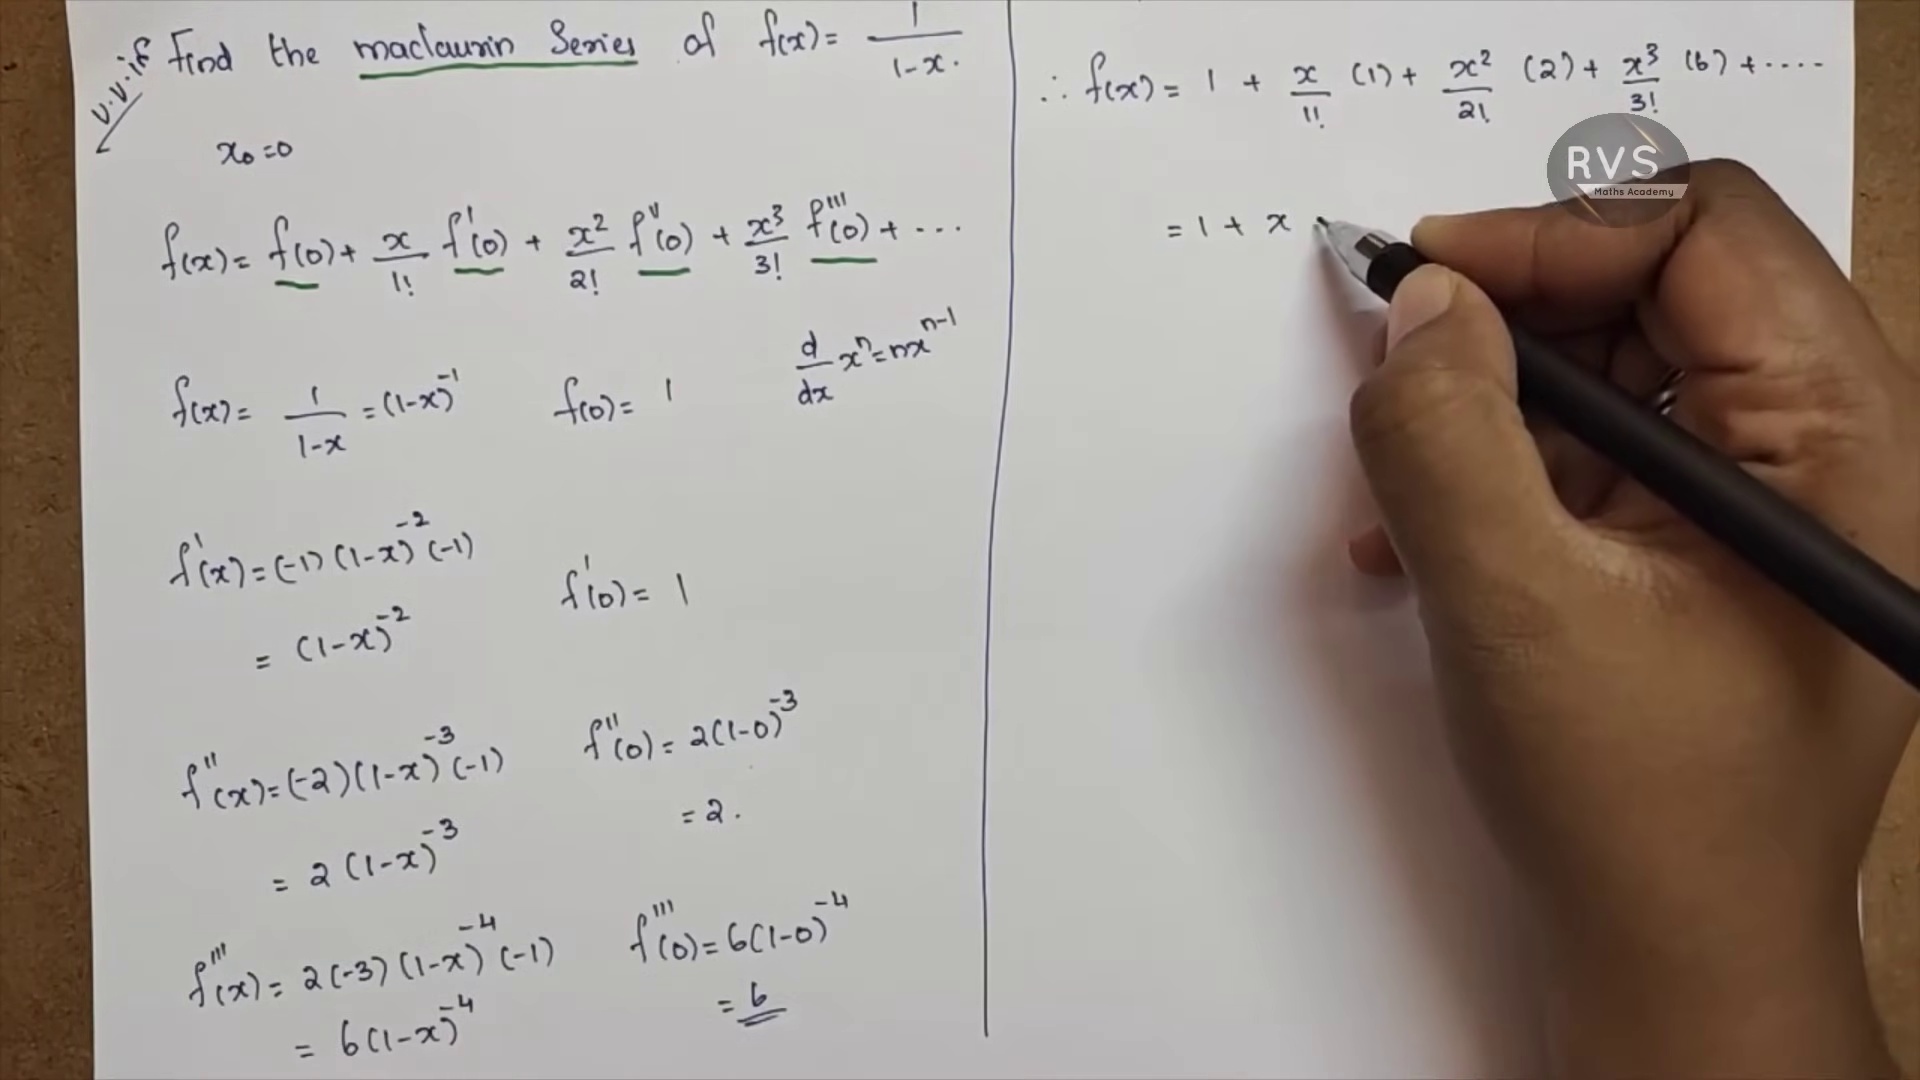 v.v.if Find the maclaurin Series of f(x) = 1/(1-x).
x₀=0
f(x) = f(0) + x/1! f'(0) + x²/2! f''(0) + x³/3! f'''(0) + ...
d/dx xⁿ = nxⁿ⁻¹
f(x) = 1/(1-x) = (1-x)⁻¹ f(0) = 1
f'(x) = (-1)(1-x)⁻²(-1)
= (1-x)⁻² f'(0) = 1
f''(x) = (-2)(1-x)⁻³(-1) f''(0) = 2(1-0)⁻³
= 2(1-x)⁻³ = 2.
f'''(x) = 2(-3)(1-x)⁻⁴(-1) f'''(0) = 6(1-0)⁻⁴
= 6(1-x)⁻⁴ = 6
∴ f(x) = 1 + x/1! (1) + x²/2! (2) + x³/3! (6) + ....
= 1 + x
RVS
Maths Academy